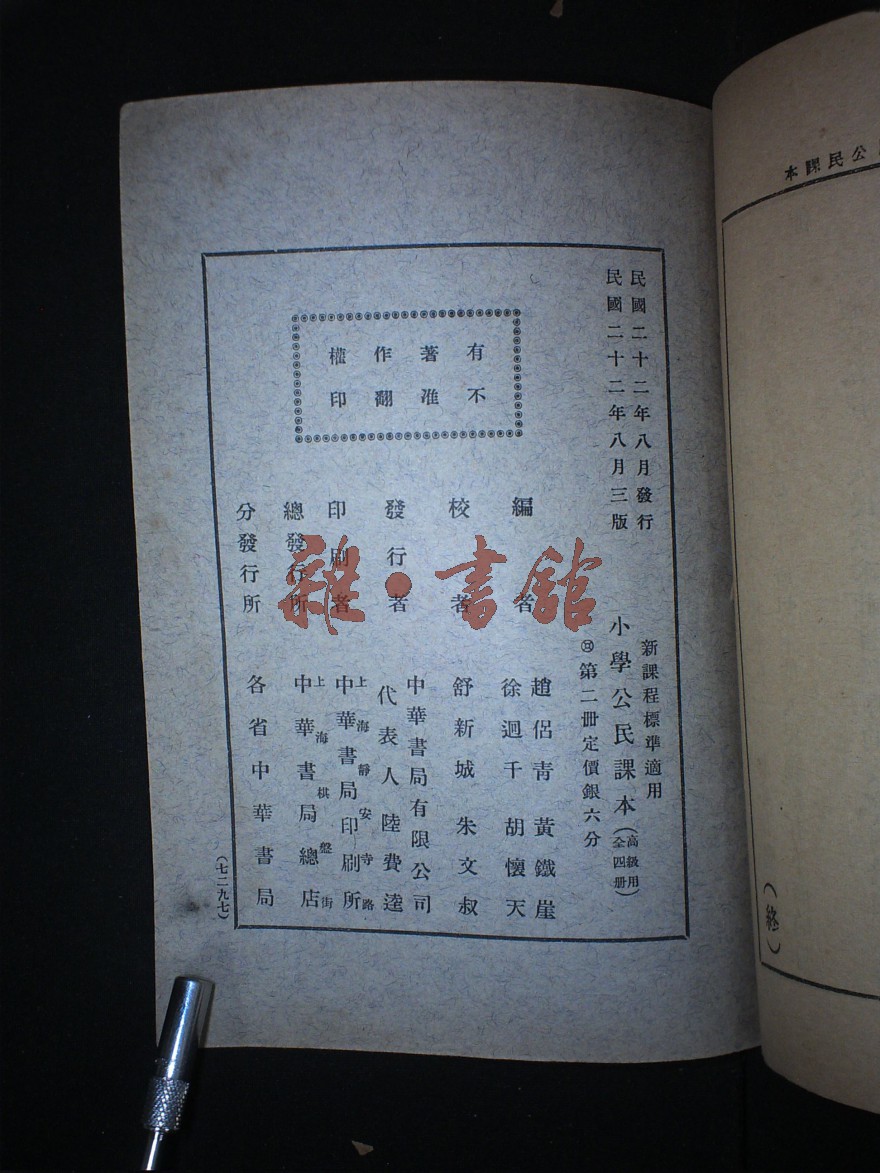 公民課本
（終）
民國二十二年八月發行
民國二十二年八月三版
新課程標準適用
小學公民課本（高級用全四冊）
第二冊定價銀六分
有著作權
不准翻印
編者
趙侶青 黃鐵崖
徐迥千 胡懷天
校者
舒新城 朱文叔
發行者
中華書局有限公司
代表人 陸費逵
印刷者
上海靜安寺路
中華書局印刷所
總發行所
上海棋盤街
中華書局總店
分發行所
各省中華書局
（七二九七）
雜·書館